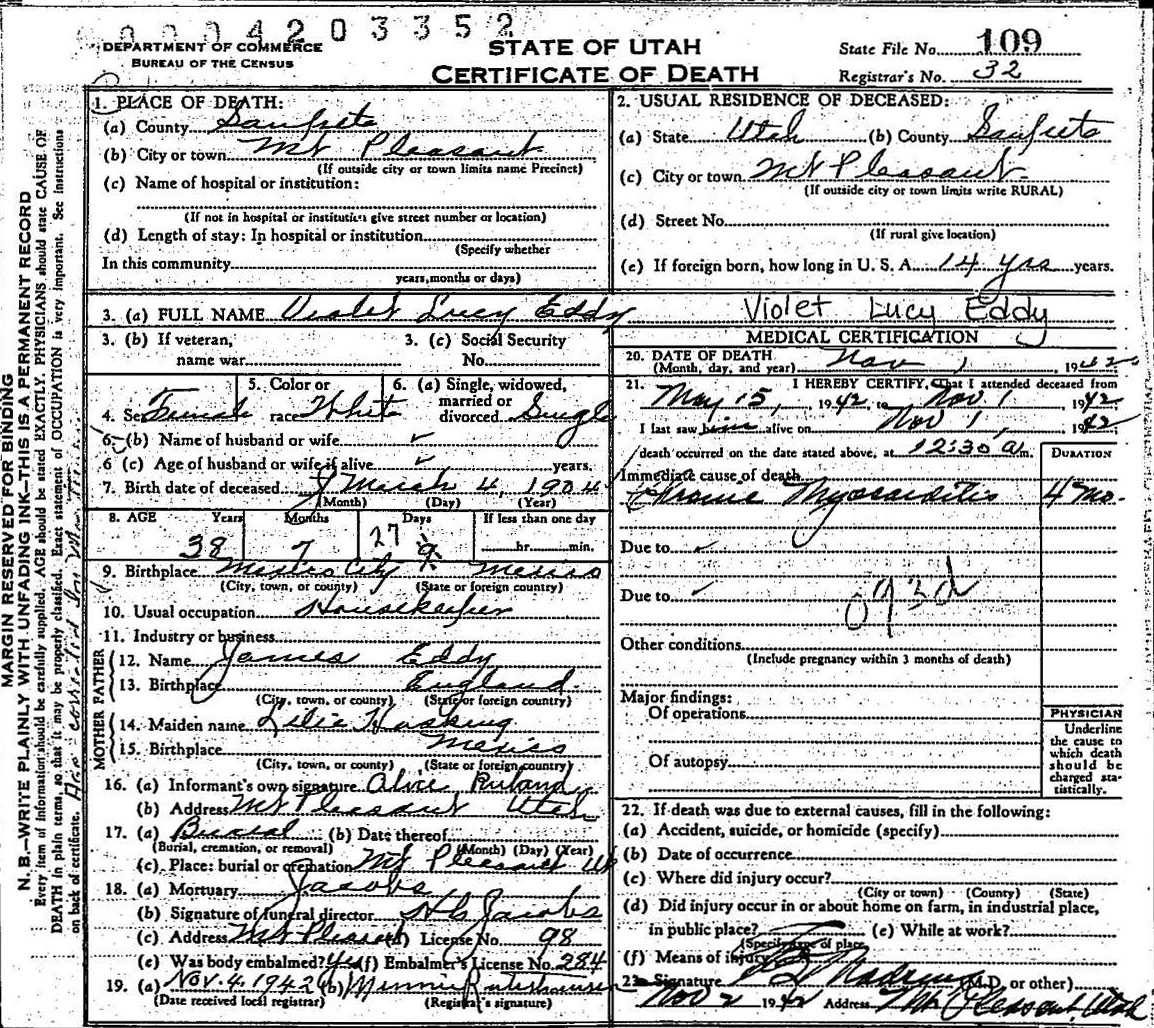 0004203352
DEPARTMENT OF COMMERCE
BUREAU OF THE CENSUS
STATE OF UTAH
CERTIFICATE OF DEATH
State File No. 109
Registrar's No. 32
MARGIN RESERVED FOR BINDING
N. B.—WRITE PLAINLY WITH UNFADING INK—THIS IS A PERMANENT RECORD
Every item of information should be carefully supplied. AGE should be stated EXACTLY. PHYSICIANS should state CAUSE OF
DEATH in plain terms, so that it may be properly classified. Exact statement of OCCUPATION is very important. See instructions
on back of certificate.
1. PLACE OF DEATH:
(a) County Sanpete
(b) City or town Mt Pleasant
(If outside city or town limits name Precinct)
(c) Name of hospital or institution:
(If not in hospital or institution give street number or location)
(d) Length of stay: In hospital or institution
(Specify whether
In this community
years, months or days)
2. USUAL RESIDENCE OF DECEASED:
(a) State Utah (b) County Sanpete
(c) City or town Mt Pleasant
(If outside city or town limits write RURAL)
(d) Street No.
(If rural give location)
(e) If foreign born, how long in U. S. A. 14 yrs years.
3. (a) FULL NAME Violet Lucy Eddy Violet Lucy Eddy
3. (b) If veteran, name war
3. (c) Social Security No.
4. Sex Female
5. Color or race White
6. (a) Single, widowed, married or divorced Single
6. (b) Name of husband or wife ✓
6 (c) Age of husband or wife if alive ✓ years.
7. Birth date of deceased: March 4, 1904
(Month) (Day) (Year)
8. AGE Years Months Days If less than one day
38 7 27 hr. min.
9. Birthplace Mexico City Mexico
(City, town, or county) (State or foreign country)
10. Usual occupation Housekeeper
11. Industry or business
FATHER
12. Name James Eddy
13. Birthplace England
(City, town, or county) (State or foreign country)
MOTHER
14. Maiden name Lilie Hosking
15. Birthplace Mexico
(City, town, or county) (State or foreign country)
16. (a) Informant's own signature Alice Ruland
(b) Address Mt Pleasant Utah
17. (a) Burial (b) Date thereof
(Burial, cremation, or removal) (Month) (Day) (Year)
(c) Place: burial or cremation Mt Pleasant Ut
18. (a) Mortuary Jacobs
(b) Signature of funeral director H C Jacobs
(c) Address Mt Pleasant (d) License No. 98
(e) Was body embalmed? Yes (f) Embalmer's License No. 284
19. (a) Nov. 4. 1942 (b) Minnie
(Date received local registrar) (Registrar's signature)
MEDICAL CERTIFICATION
20. DATE OF DEATH Nov 1 1942
(Month, day, and year)
21. I HEREBY CERTIFY, That I attended deceased from
May 15, 1942 to Nov 1 1942
I last saw him alive on Nov 1 1942
death occurred on the date stated above, at 12:30 a.m.
DURATION
Immediate cause of death
Chronic Myocarditis 4 mo.
Due to ✓
Due to ✓
093d
Other conditions
(Include pregnancy within 3 months of death)
Major findings:
Of operations
Of autopsy
PHYSICIAN
Underline
the cause to
which death
should be
charged sta-
tistically.
22. If death was due to external causes, fill in the following:
(a) Accident, suicide, or homicide (specify)
(b) Date of occurrence
(c) Where did injury occur?
(City or town) (County) (State)
(d) Did injury occur in or about home on farm, in industrial place,
in public place? (e) While at work?
(Specify type of place
(f) Means of injury
23. Signature (M.D. or other)
Nov 2 1942 Address Mt Pleasant, Utah